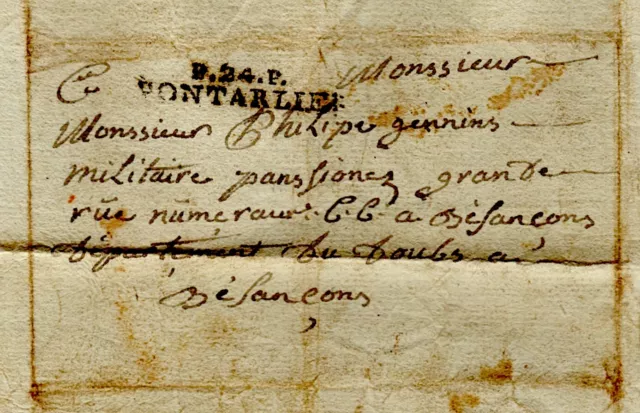 P.24.P.
PONTARLIER
Monssieur
Monssieur Philipe gennins
militaire panssionez grande
rüe numeraus. C.C. à Bésançons
département du doubs a
Bésançons